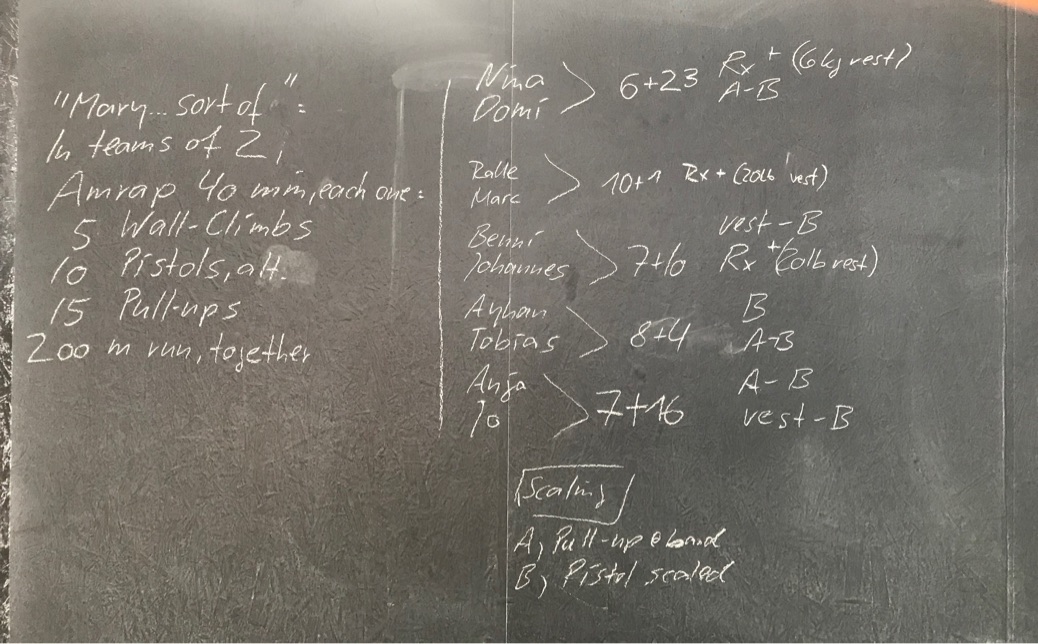 "Mary... sort of":
In teams of 2,
Amrap 40 min, each one:
5 Wall-Climbs
10 Pistols, alt.
15 Pull-ups
200 m run, together
Nina
Domi
6+23
Rx+ (6kg vest)
A-B
Ralle
Marc
10+1 Rx+ (20lb vest)
Benni
Johannes
7+10
vest-B
Rx+ (20lb vest)
Ayhan
Tobias
8+4
B
A-B
Anja
Jo
7+16
A-B
vest-B
Scaling
A, Pull-up e band
B, Pistol scaled